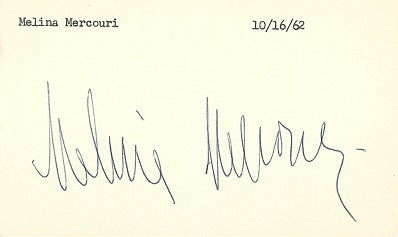 Melina Mercouri 10/16/62
Melina Mercouri